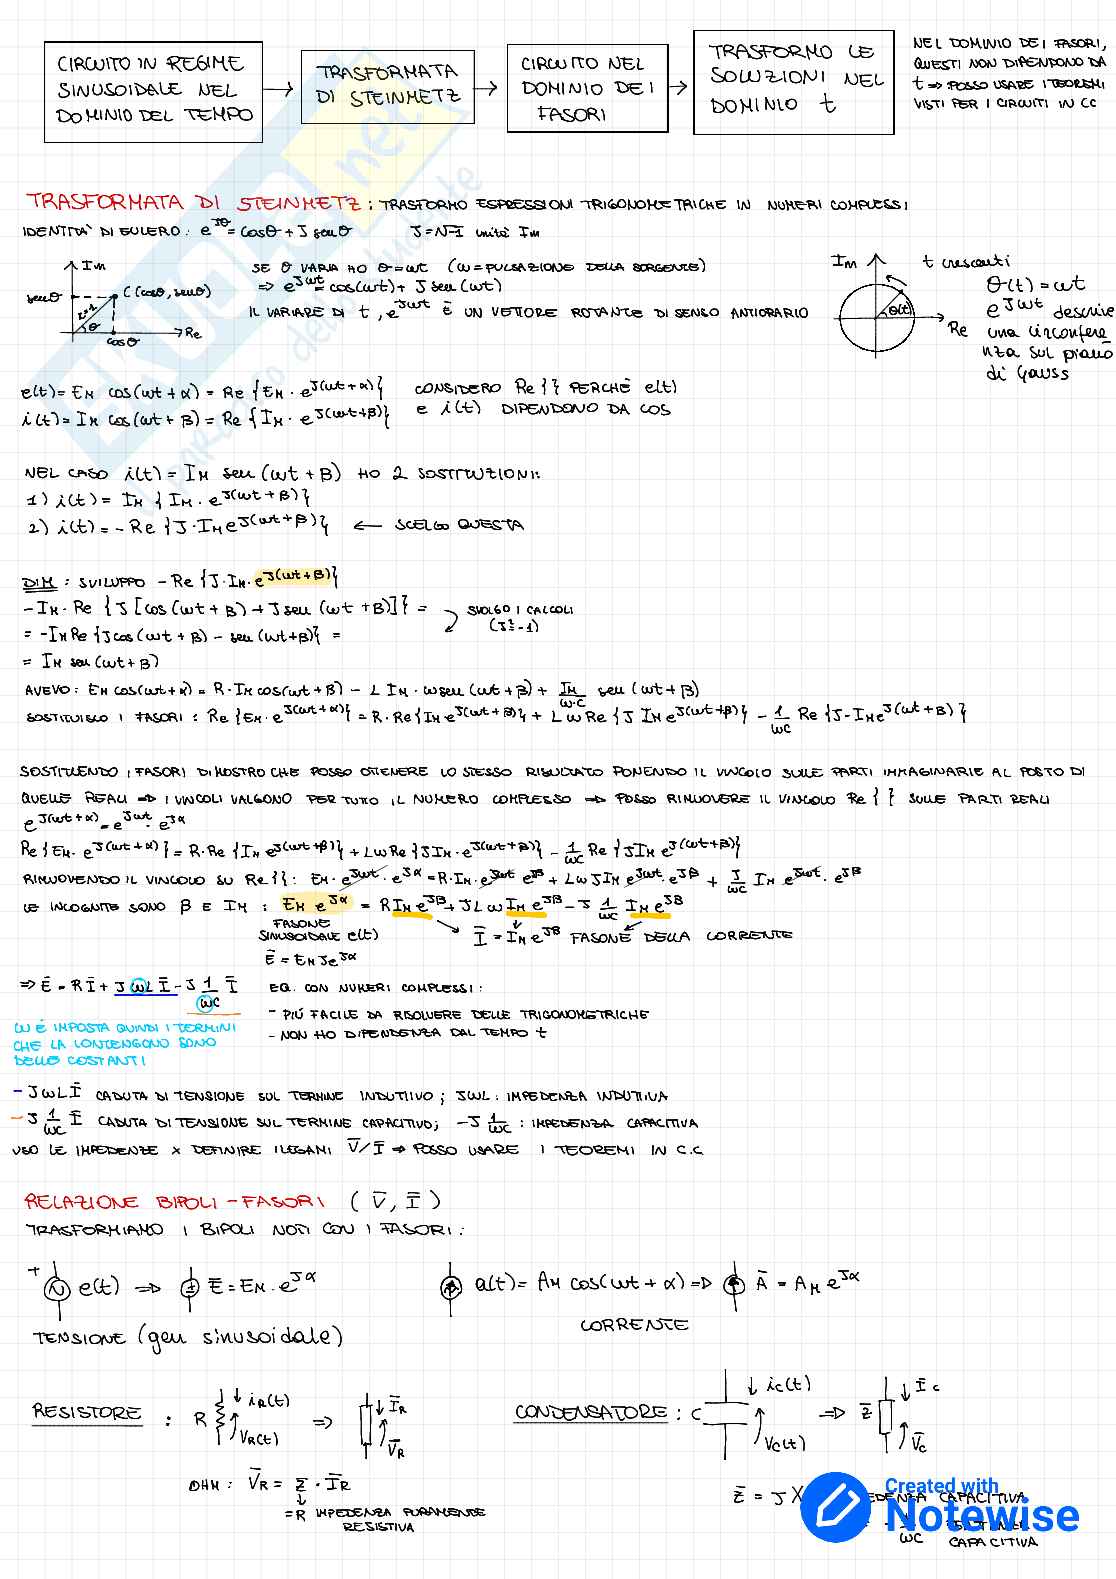 CIRCUITO IN REGIME
SINUSOIDALE NEL
DOMINIO DEL TEMPO
TRASFORMATA
DI STEINMETZ
CIRCUITO NEL
DOMINIO DEI
FASORI
TRASFORMO LE
SOLUZIONI NEL
DOMINIO t
NEL DOMINIO DEI FASORI,
QUESTI NON DIPENDONO DA
t ⇒ POSSO USARE I TEOREMI
VISTI PER I CIRCUITI IN CC
TRASFORMATA DI STEINMETZ : TRASFORMO ESPRESSIONI TRIGONOMETRICHE IN NUMERI COMPLESSI
IDENTITA' DI EULERO : e^Jθ = cosθ + J senθ J = √-1 unità Im
Im
senθ
C (cosθ, senθ)
θ
Re
cosθ
SE θ VARIA HO θ=ωt (ω=PULSAZIONE DELLA SORGENTE)
⇒ e^Jωt = cos(ωt) + J sen(ωt)
IL VARIARE DI t, e^Jωt È UN VETTORE ROTANTE DI SENSO ANTIORARIO
Im
θ(t)
Re
t crescenti
θ(t) = ωt
e^Jωt descrive
una circonfere
nza sul piano
di Gauss
e(t) = E_M cos(ωt + α) = Re {E_M · e^J(ωt+α)} CONSIDERO Re{ } PERCHÈ e(t)
i(t) = I_M cos(ωt + β) = Re {I_M · e^J(ωt+β)} e i(t) DIPENDONO DA COS
NEL CASO i(t) = I_M sen (ωt + β) HO 2 SOSTITUZIONI:
1) i(t) = I_M {I_M · e^J(ωt + β)}
2) i(t) = - Re {J · I_M e^J(ωt + β)} ← SCELGO QUESTA
DIM : SVILUPPO - Re {J · I_M · e^J(ωt + β)}
- I_M · Re {J [cos (ωt + β) + J sen (ωt + β)]} = SVOLGO I CALCOLI
(J²=-1)
= - I_M Re {J cos (ωt + β) - sen (ωt+β)} =
= I_M sen (ωt + β)
AVEVO: E_M cos(ωt + α) = R · I_M cos(ωt + β) - L I_M · ω sen (ωt + β) + I_M/ω·C sen (ωt + β)
SOSTITUISCO I FASORI : Re {E_M · e^J(ωt + α)} = R · Re{I_M e^J(ωt + β)} + Lω Re {J I_M e^J(ωt+β)} - 1/ωC Re {J · I_M e^J(ωt + β)}
SOSTITUENDO I FASORI DIMOSTRO CHE POSSO OTTENERE LO STESSO RISULTATO PONENDO IL VINCOLO SULLE PARTI IMMAGINARIE AL POSTO DI
QUELLE REALI ⇒ I VINCOLI VALGONO PER TUTTO IL NUMERO COMPLESSO ⇒ POSSO RIMUOVERE IL VINCOLO Re { } SULLE PARTI REALI
e^J(ωt + α) = e^Jωt · e^Jα
Re {E_M · e^J(ωt + α)} = R · Re {I_M e^J(ωt+β)} + Lω Re {J I_M · e^J(ωt+β)} - 1/ωC Re {J I_M e^J(ωt+β)}
RIMUOVENDO IL VINCOLO SU Re{ } : E_M · e^Jωt · e^Jα = R · I_M · e^Jωt e^Jβ + Lω J I_M e^Jωt · e^Jβ + J/ωC I_M e^Jωt · e^Jβ
LE INCOGNITE SONO β E I_M : E_M e^Jα = R I_M e^Jβ + J L ω I_M e^Jβ - J 1/ωC I_M e^Jβ
FASORE
SINUSOIDALE e(t)
Ē = E_M J e^Jα
Ī = I_M e^Jβ FASORE DELLA CORRENTE
⇒ Ē = R Ī + J ωL Ī - J 1/ωC Ī
EQ. CON NUMERI COMPLESSI :
- PIÙ FACILE DA RISOLVERE DELLE TRIGONOMETRICHE
- NON HO DIPENDENZA DAL TEMPO t
ω È IMPOSTA QUINDI I TERMINI
CHE LA CONTENGONO SONO
DELLE COSTANTI
- JωL Ī CADUTA DI TENSIONE SUL TERMINE INDUTTIVO ; JωL : IMPEDENZA INDUTTIVA
- J 1/ωC Ī CADUTA DI TENSIONE SUL TERMINE CAPACITIVO; - J 1/ωC : IMPEDENZA CAPACITIVA
USO LE IMPEDENZE X DEFINIRE I LEGAMI V̄/Ī ⇒ POSSO USARE I TEOREMI IN C.C
RELAZIONE BIPOLI - FASORI ( V̄, Ī )
TRASFORMIAMO I BIPOLI NOTI CON I FASORI :
+ e(t) ⇒ Ē = E_M · e^Jα a(t) = A_M cos(ωt + α) ⇒ Ā = A_M e^Jα
TENSIONE (gen sinusoidale)
CORRENTE
RESISTORE : R i_R(t) V_R(t) ⇒ Ī_R V̄_R
OHM : V̄_R = Z̄ · Ī_R
= R IMPEDENZA PURAMENTE
RESISTIVA
CONDENSATORE : C i_C(t) V_C(t) ⇒ Z̄ Ī_C V̄_C
Z̄ = J X EDENZA CAPACITIVA
- 1/ωC
CAPACITIVA
Created with
Notewise